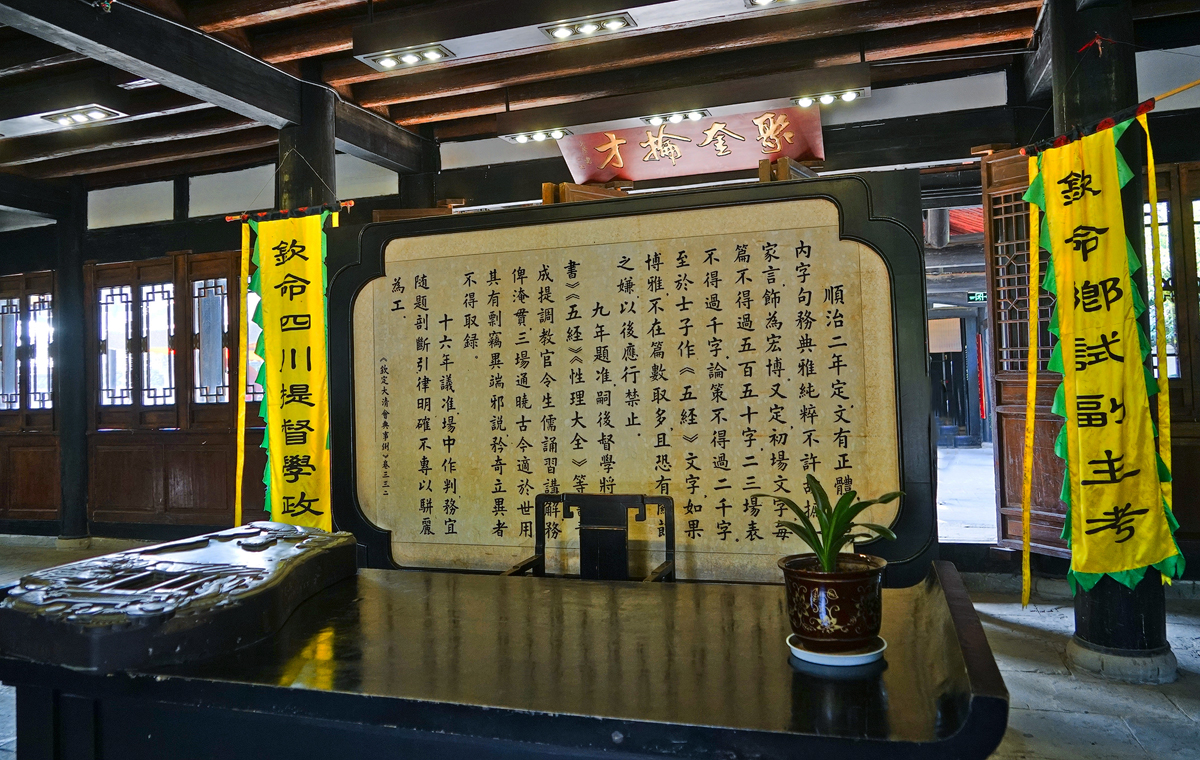 聚奎掄才
欽命鄉試副主考
順治二年定文有正體
內字句務典雅純粹不許
家言飾為宏博又定初場文字每
篇不得過五百五十字二三場表
不得過千字論策不得過二千字
至於士子作《五經》文字如果
博雅不在篇數取多且恐有
之嫌以後應行禁止.
九年題准嗣後督學將
書》《五經》《性理大全》等
成提調教官令生儒誦習講解務
俾淹貫三場通曉古今適於世用
其有剽竊異端邪說矜奇立異者
不得取錄.
十六年議准場中作判務宜
随題剖斷引律明確不專以駢麗
為工.
《欽定大清會典事例》卷三三二
欽命四川提督學政